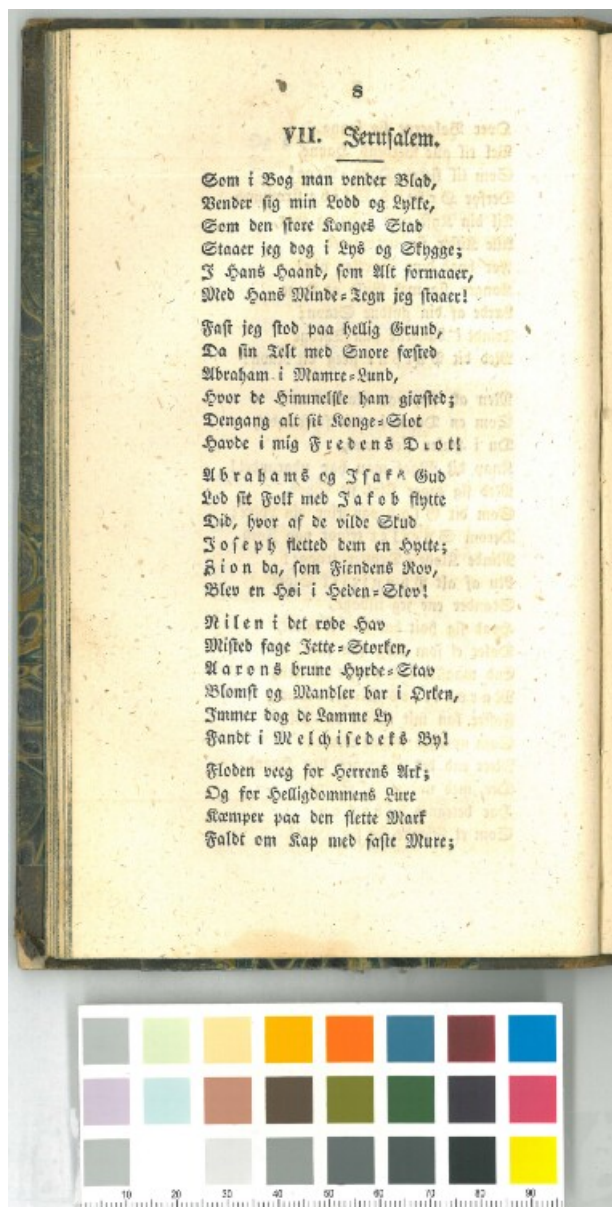 8
VII. Jerusalem.
Som i Bog man vender Blad,
Vender sig min Lodd og Lykke,
Som den store Konges Stad
Staaer jeg dog i Lys og Skygge;
I Hans Haand, som Alt formaaer,
Med Hans Minde-Tegn jeg staaer!
Fast jeg stod paa hellig Grund,
Da sin Telt med Snore fæsted
Abraham i Mamre-Lund,
Hvor de Himmelske ham gjæsted;
Dengang alt sit Konge-Slot
Havde i mig Fredens Drot!
Abrahams og Isaks Gud
Lod sit Folk med Jakob flytte
Did, hvor af de vilde Skud
Joseph fletted dem en Hytte;
Zion da, som Fiendens Rov,
Blev en Høi i Heden-Skov!
Nilen i det røde Hav
Misted fage Jette-Storken,
Aarons brune Hyrde-Stav
Blomst og Mandler bar i Ørken,
Immer dog de Lamme Ly
Fandt i Melchisedeks By!
Floden veeg for Herrens Ark;
Og for Helligdommens Lure
Kæmper paa den slette Mark
Faldt om Kap med faste Mure;
10 20 30 40 50 60 70 80 90